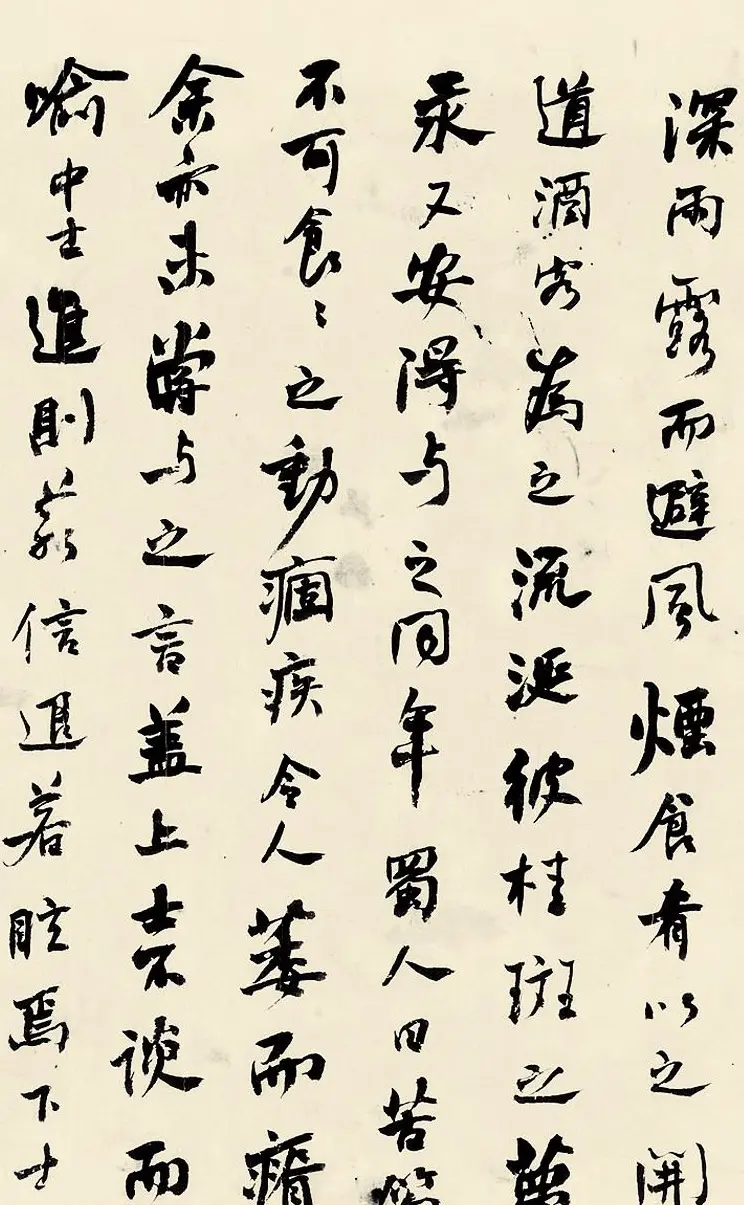 深雨露而避風煙食肴以之開
道酒客為之流涎彼桂斑之夢
汞又安得与之同年蜀人曰苦筍
不可食〻之動痼疾令人萎而瘠
余亦未嘗与之言蓋上士不談而
喻中士進則若信退若眩焉下士